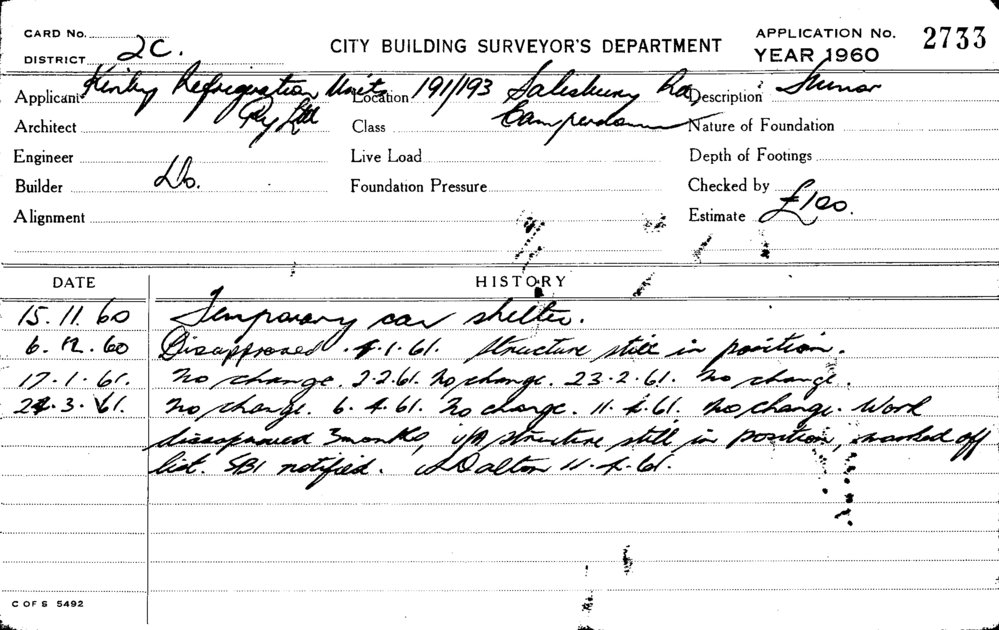 CARD No.
DISTRICT 2C.
CITY BUILDING SURVEYOR'S DEPARTMENT
APPLICATION No. 2733
YEAR 1960
Applicant Kirby Refrigeration Units Location 191/193 Salisbury Rd Description Minor
Architect Pty Ltd Class Camperdown Nature of Foundation
Engineer Live Load Depth of Footings
Builder Do. Foundation Pressure Checked by
Alignment Estimate £100.
DATE HISTORY
15.11.60 Temporary car shelter.
6.12.60 Disapproved. 4.1.61. Structure still in position.
17.1.61. No change. 2.2.61. No change. 23.2.61. No change.
24.3.61. No change. 6.4.61. No change. 11.4.61. No change. Work
disapproved 3 months, structure still in position, marked off
list. SBI notified. Dalton 11.4.61.
C OF S 5492